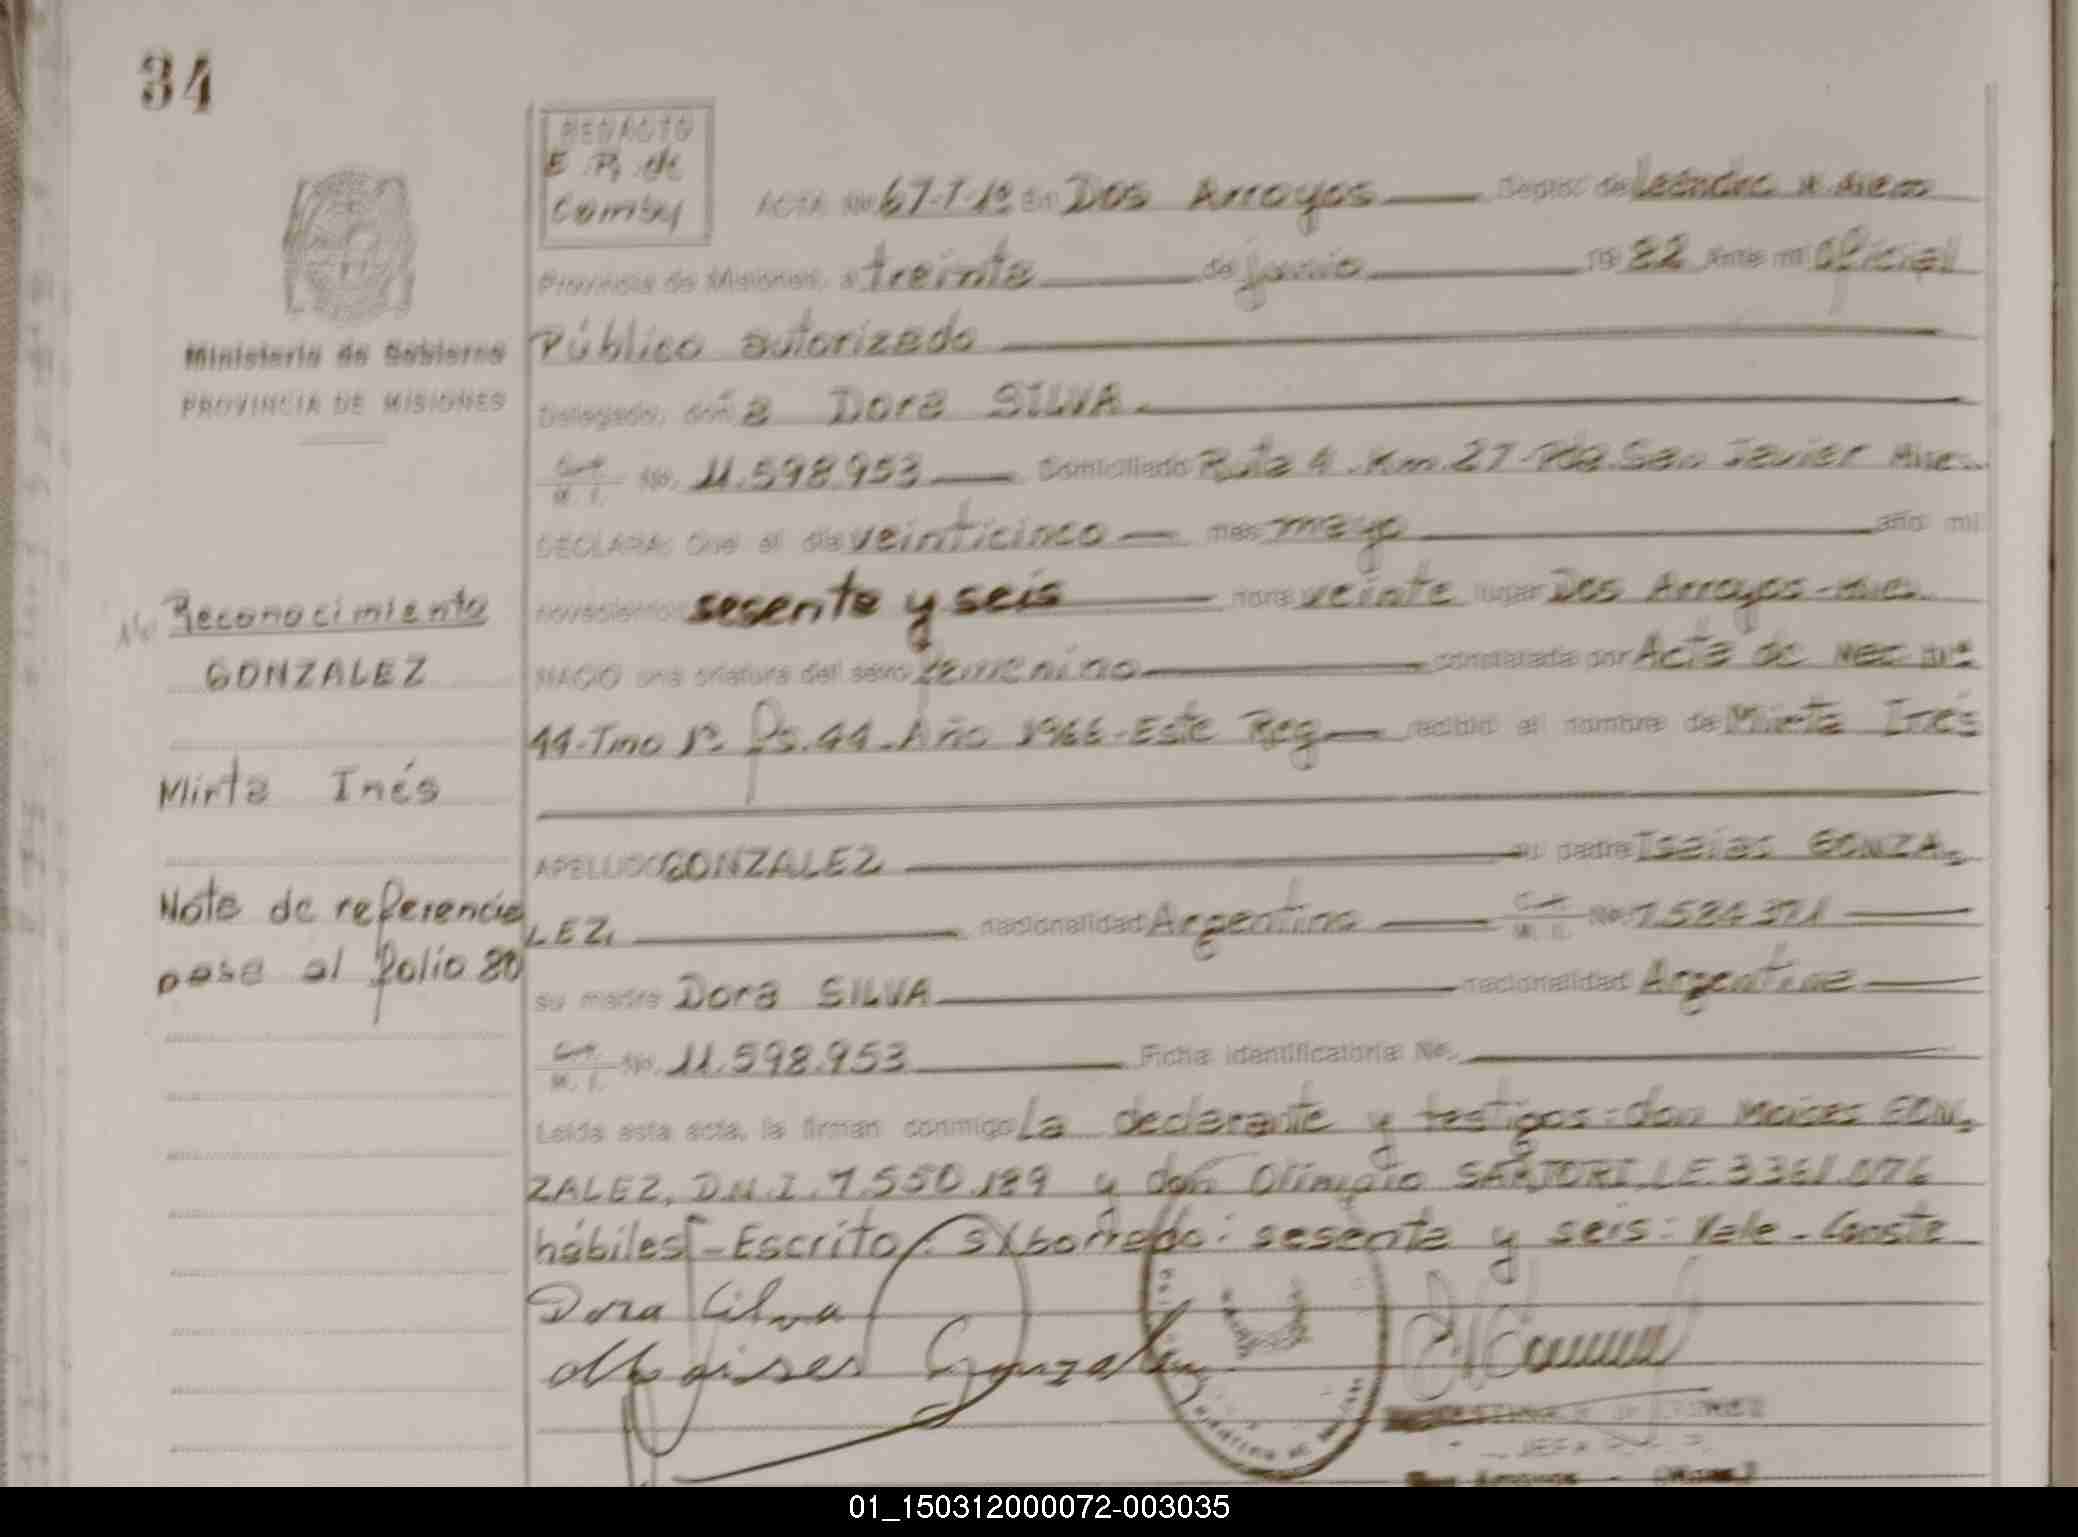 34
REDACTO
E. R. de
Comby
ACTA No 67-T-1º en Dos Arroyos Depto. de Leandro N. Alem
Provincia de Misiones, a treinta de junio 19 82 Ante mi Oficial
Público autorizado
Delegado, doña Dora SILVA
M. I. No. 11.598.953 Domiciliado Ruta 4. Km. 27-Pda. San Javier Mnes.
DECLARA: Que el día veinticinco mes mayo año mil
novecientos sesenta y seis hora veinte lugar Dos Arroyos-Mnes
NACIO una criatura del sexo femenino constatada por Acta de Nac nº
44-Tmo 1º fs. 44-Año 1966-Este Reg recibió el nombre de Mirta Inés
APELLIDO GONZALEZ su padre Isaías GONZA
LEZ, nacionalidad Argentino M. I. No. 7.584.371
su madre Dora SILVA nacionalidad Argentina
M. I. No. 11.598.953 Ficha identificatoria No.
Leída esta acta, la firman conmigo La declarante y testigos: don Moises GON
ZALEZ, D.N.I. 7.550.189 y don Olimpio SARTORI, L.E. 3361.076
hábiles-Escrito s/borrado: sesenta y seis: Vale-Conste
Dora Silva
Moises Gonzalez
Ministerio de Gobierno
PROVINCIA DE MISIONES
No Reconocimiento
GONZALEZ
Mirta Inés
Nota de referencia
pasa al folio 80
01_150312000072-003035